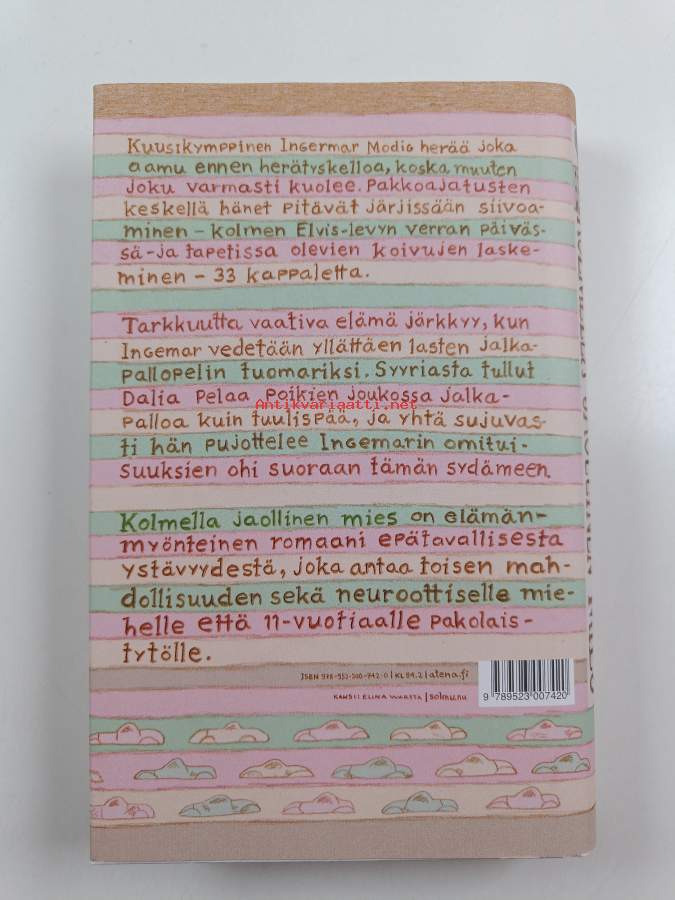 Kuusikymppinen Ingermar Modig herää joka
aamu ennen herätyskelloa, koska muuten
joku varmasti kuolee. Pakkoajatusten
keskellä hänet pitävät järjissään siivoa-
minen – kolmen Elvis-levyn verran päiväs-
sä – ja tapetissa olevien koivujen laske-
minen – 33 kappaletta.
Tarkkuutta vaativa elämä järkkyy, kun
Ingemar vedetään yllättäen lasten jalka-
pallopelin tuomariksi. Syyriasta tullut
Dalia pelaa poikien joukossa jalka-
Antikvariaatti.net
palloa kuin tuulispää, ja yhtä sujuvas-
ti hän pujottelee Ingemarin omitui-
suuksien ohi suoraan tämän sydämeen.
Kolmella jaollinen mies on elämän-
myönteinen romaani epätavallisesta
ystävyydestä, joka antaa toisen mah-
dollisuuden sekä neuroottiselle mie-
helle että 11-vuotiaalle pakolais-
tytölle.
ISBN 978-952-300-742-0 | KL 84.2 | atena.fi
KANSI ELINA WARSTA | solmu.nu
9 789523 007420